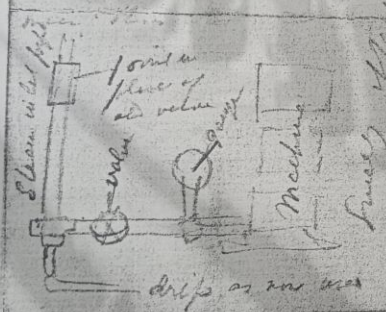 Steam inlet pipe
joint in
place of
old valve
valve
gauge
Machine
drip as now used